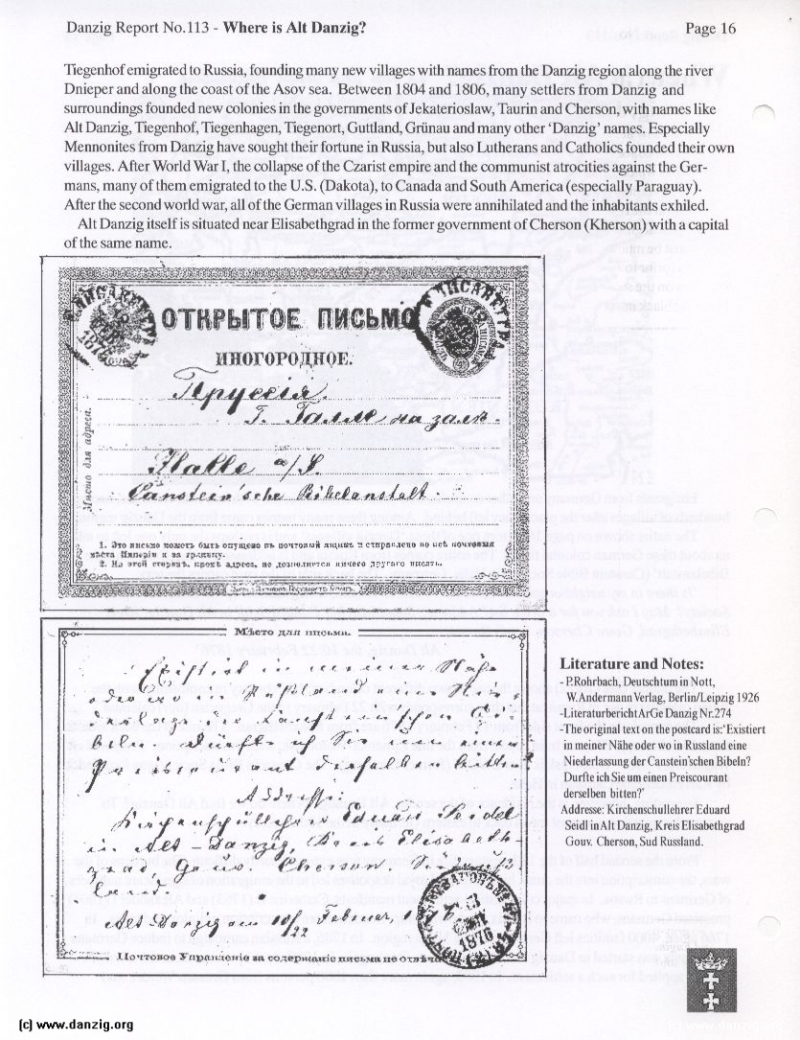 Danzig Report No.113 - Where is Alt Danzig? Page 16
Tiegenhof emigrated to Russia, founding many new villages with names from the Danzig region along the river
Dnieper and along the coast of the Asov sea. Between 1804 and 1806, many settlers from Danzig and
surroundings founded new colonies in the governments of Jekaterioslaw, Taurin and Cherson, with names like
Alt Danzig, Tiegenhof, Tiegenhagen, Tiegenort, Guttland, Grünau and many other 'Danzig' names. Especially
Mennonites from Danzig have sought their fortune in Russia, but also Lutherans and Catholics founded their own
villages. After World War I, the collapse of the Czarist empire and the communist atrocities against the Ger-
mans, many of them emigrated to the U.S. (Dakota), to Canada and South America (especially Paraguay).
After the second world war, all of the German villages in Russia were annihilated and the inhabitants exhiled.
Alt Danzig itself is situated near Elisabethgrad in the former government of Cherson (Kherson) with a capital
of the same name.
ОТКРЫТОЕ ПИСЬМО
ИНОГОРОДНОЕ.
Пруссія.
Г. Галле на залѣ.
Halle a/S.
Canstein'sche Bibelanstalt.
Мѣсто для адреса.
1. Это письмо можетъ быть опущено въ почтовый ящикъ и отправлено во всѣ почтовыя
мѣста Имперіи и за границу.
2. На этой сторонѣ, кромѣ адреса, не дозволяется ничего другого писать.
Мѣсто для письма.
Existirt in meiner Nähe
oder wo in Rußland eine Nie-
derlage der Canstein'schen Bi-
beln. Dürfte ich Sie um einen
Preiscourant derselben bitten?
Adresse:
Kirchenschullehrer Eduard Seidel
in Alt-Danzig, Kreis Elisabeth-
grad, Gouv. Cherson.
Alt-Danzig am 10/22 Februar 1876
1876
Почтовое Управленіе за содержаніе письма не отвѣча
Literature and Notes:
- P.Rohrbach, Deutschtum in Nott,
W.Andermann Verlag, Berlin/Leipzig 1926
-Literaturbericht ArGe Danzig Nr.274
-The original text on the postcard is:'Existiert
in meiner Nähe oder wo in Russland eine
Niederlassung der Canstein'schen Bibeln?
Durfte ich Sie um einen Preiscourant
derselben bitten?'
Addresse: Kirchenschullehrer Eduard
Seidl in Alt Danzig, Kreis Elisabethgrad
Gouv. Cherson, Sud Russland.
(c) www.danzig.org